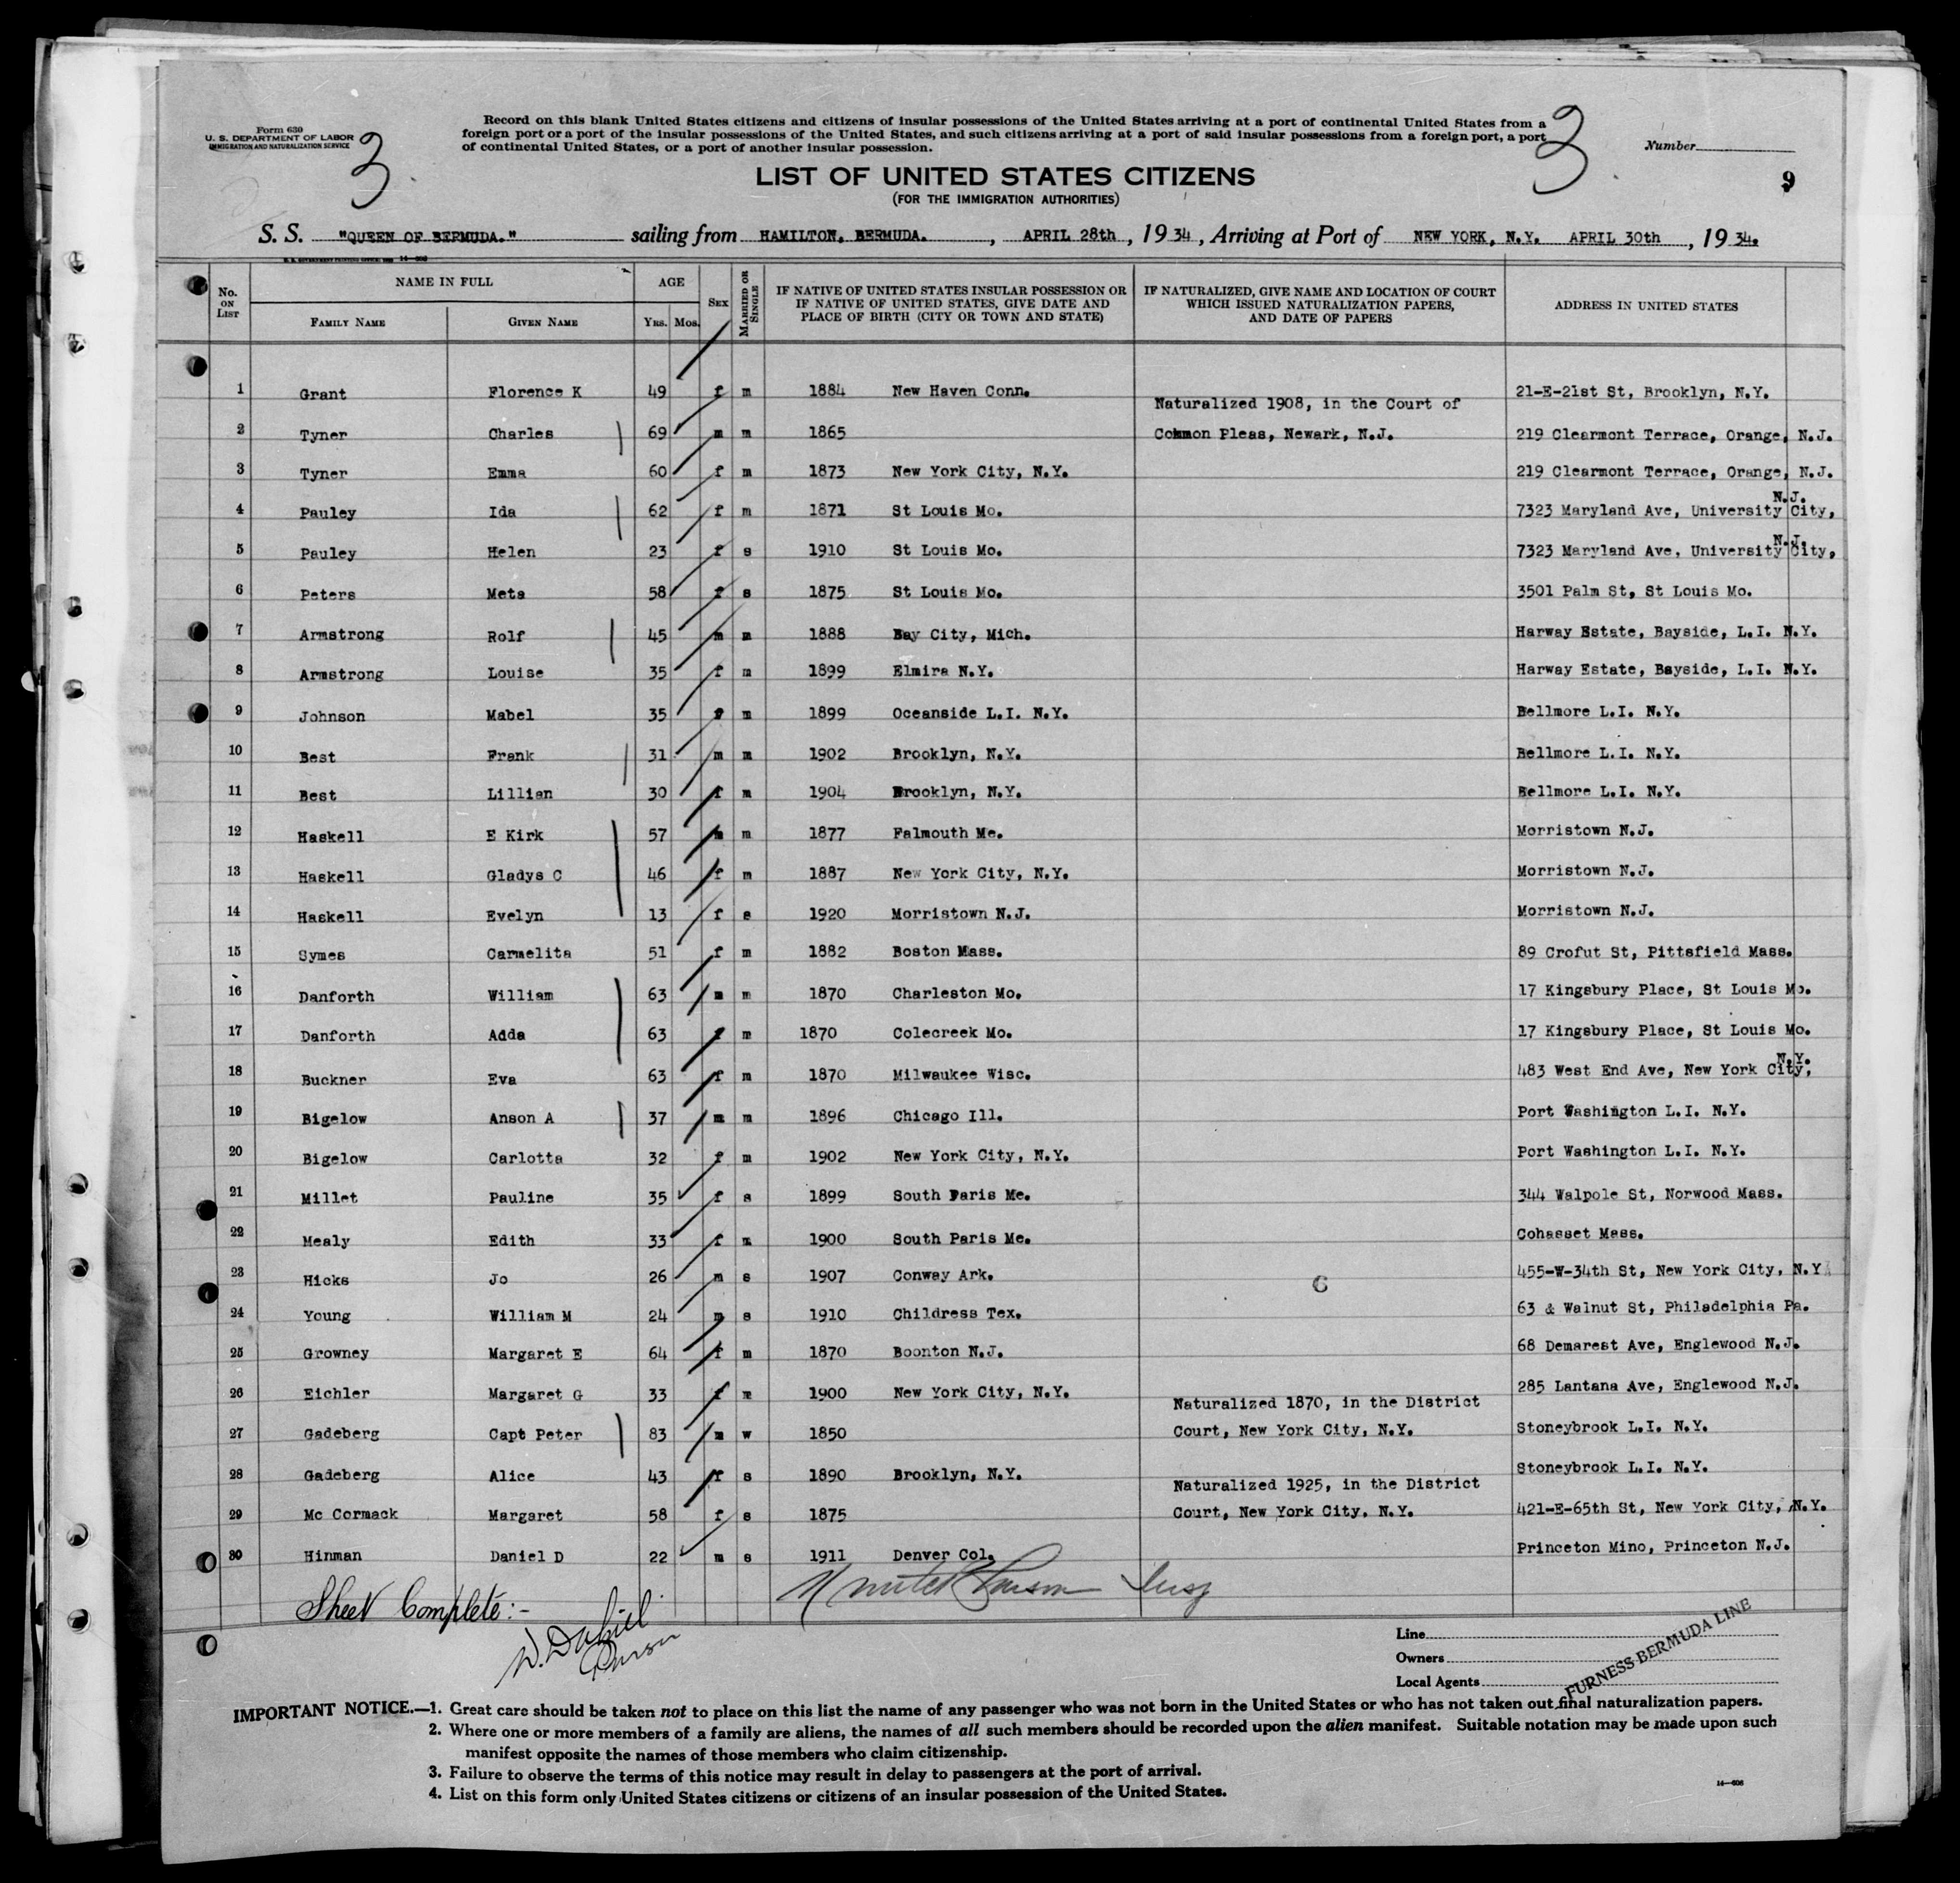 Form 630
U. S. DEPARTMENT OF LABOR
IMMIGRATION AND NATURALIZATION SERVICE
3
Record on this blank United States citizens and citizens of insular possessions of the United States arriving at a port of continental United States from a
foreign port or a port of the insular possessions of the United States, and such citizens arriving at a port of said insular possessions from a foreign port, a port
of continental United States, or a port of another insular possession.
3
Number
9
LIST OF UNITED STATES CITIZENS
(FOR THE IMMIGRATION AUTHORITIES)
S. S. "QUEEN OF BERMUDA." sailing from HAMILTON, BERMUDA. , APRIL 28th , 1934 , Arriving at Port of NEW YORK, N.Y. APRIL 30th , 1934.
No. ON LIST NAME IN FULL FAMILY NAME GIVEN NAME AGE YRS. MOS. SEX MARRIED OR SINGLE IF NATIVE OF UNITED STATES INSULAR POSSESSION OR IF NATIVE OF UNITED STATES, GIVE DATE AND PLACE OF BIRTH (CITY OR TOWN AND STATE) IF NATURALIZED, GIVE NAME AND LOCATION OF COURT WHICH ISSUED NATURALIZATION PAPERS, AND DATE OF PAPERS ADDRESS IN UNITED STATES
1 Grant Florence K 49 f m 1884 New Haven Conn. 21-E-21st St, Brooklyn, N.Y.
Naturalized 1908, in the Court of
2 Tyner Charles 69 m m 1865 Common Pleas, Newark, N.J. 219 Clearmont Terrace, Orange, N.J.
3 Tyner Emma 60 f m 1873 New York City, N.Y. 219 Clearmont Terrace, Orange, N.J.
N.J.
4 Pauley Ida 62 f m 1871 St Louis Mo. 7323 Maryland Ave, University City,
N.J.
5 Pauley Helen 23 f s 1910 St Louis Mo. 7323 Maryland Ave, University City,
6 Peters Meta 58 f s 1875 St Louis Mo. 3501 Palm St, St Louis Mo.
7 Armstrong Rolf 45 m m 1888 Bay City, Mich. Harway Estate, Bayside, L.I. N.Y.
8 Armstrong Louise 35 f m 1899 Elmira N.Y. Harway Estate, Bayside, L.I. N.Y.
9 Johnson Mabel 35 f m 1899 Oceanside L.I. N.Y. Bellmore L.I. N.Y.
10 Best Frank 31 m m 1902 Brooklyn, N.Y. Bellmore L.I. N.Y.
11 Best Lillian 30 f m 1904 Brooklyn, N.Y. Bellmore L.I. N.Y.
12 Haskell E Kirk 57 m m 1877 Falmouth Me. Morristown N.J.
13 Haskell Gladys C 46 f m 1887 New York City, N.Y. Morristown N.J.
14 Haskell Evelyn 13 f s 1920 Morristown N.J. Morristown N.J.
15 Symes Carmelita 51 f m 1882 Boston Mass. 89 Crofut St, Pittsfield Mass.
16 Danforth William 63 m m 1870 Charleston Mo. 17 Kingsbury Place, St Louis Mo.
17 Danforth Adda 63 f m 1870 Colecreek Mo. 17 Kingsbury Place, St Louis Mo.
N.Y.
18 Buckner Eva 63 f m 1870 Milwaukee Wisc. 483 West End Ave, New York City,
19 Bigelow Anson A 37 m m 1896 Chicago Ill. Port Washington L.I. N.Y.
20 Bigelow Carlotta 32 f m 1902 New York City, N.Y. Port Washington L.I. N.Y.
21 Millet Pauline 35 f s 1899 South Paris Me. 344 Walpole St, Norwood Mass.
22 Mealy Edith 33 f m 1900 South Paris Me. Cohasset Mass.
23 Hicks Jo 26 m s 1907 Conway Ark. 455-W-34th St, New York City, N.Y
24 Young William M 24 m s 1910 Childress Tex. 63 & Walnut St, Philadelphia Pa.
25 Growney Margaret E 64 f m 1870 Boonton N.J. 68 Demarest Ave, Englewood N.J.
26 Eichler Margaret G 33 f m 1900 New York City, N.Y. 285 Lantana Ave, Englewood N.J.
Naturalized 1870, in the District
27 Gadeberg Capt Peter 83 m w 1850 Court, New York City, N.Y. Stoneybrook L.I. N.Y.
28 Gadeberg Alice 43 f s 1890 Brooklyn, N.Y. Stoneybrook L.I. N.Y.
Naturalized 1925, in the District
29 Mc Cormack Margaret 58 f s 1875 Court, New York City, N.Y. 421-E-65th St, New York City, N.Y.
30 Hinman Daniel D 22 m s 1911 Denver Col. Princeton Mino, Princeton N.J.
Sheet Complete:-
Insp
Purser
Line
Owners
Local Agents
FURNESS BERMUDA LINE
IMPORTANT NOTICE.—1. Great care should be taken not to place on this list the name of any passenger who was not born in the United States or who has not taken out final naturalization papers.
2. Where one or more members of a family are aliens, the names of all such members should be recorded upon the alien manifest. Suitable notation may be made upon such
manifest opposite the names of those members who claim citizenship.
3. Failure to observe the terms of this notice may result in delay to passengers at the port of arrival.
4. List on this form only United States citizens or citizens of an insular possession of the United States.
14—608